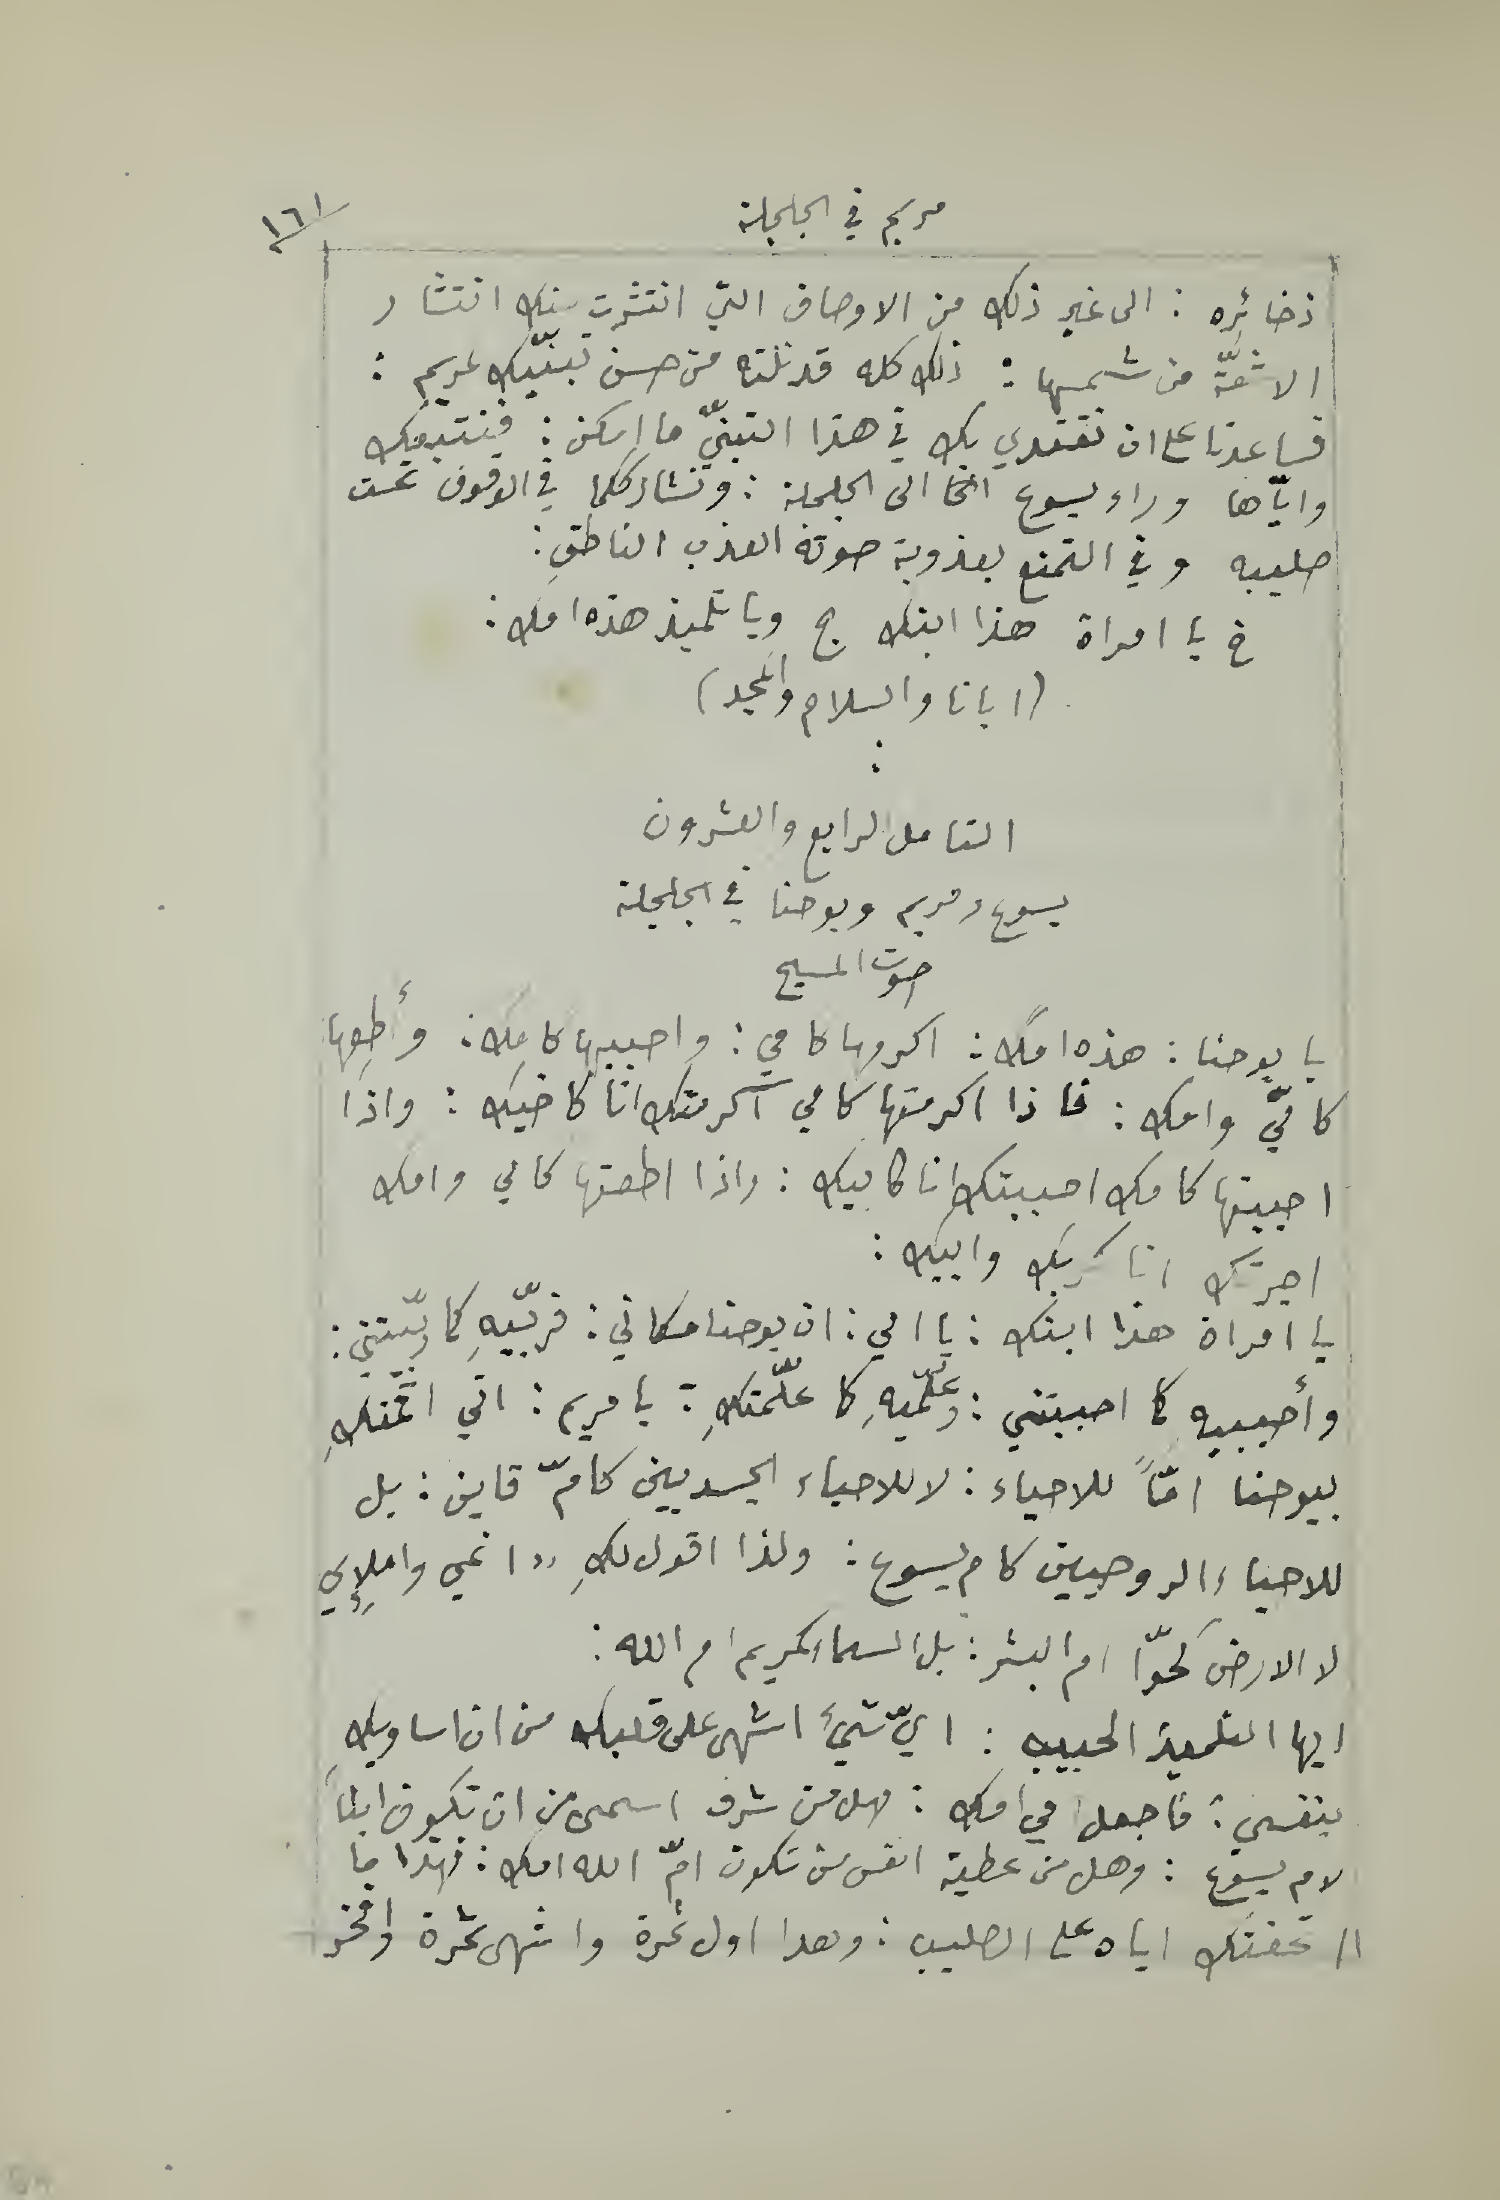 مريم في الجلجلة
١٦١
ذخائره : الى غير ذلك من الاوصاف التي انتثرت منك انتثار
الاشعّة من شمسها : ذلك كله قد نلته من حسن تبنّيك لمريم :
فساعدنا على ان نقتدي بك في هذا التبنّي ما امكن : فنتبعك
وايّاها وراء يسوع الى الجلجلة : ونشارككما في الوقوف تحت
صليبه وفي التمتع بعذوبة صوته العذب الناطق :
خ يا امراة هذا ابنك ج ويا تلميذ هذه امك :
(ابانا والسلام والمجد)
التامل الرابع والعشرون
يسوع ومريم ويوحنا في الجلجلة
صوت المسيح
يا يوحنا : هذه امك : اكرمها كامي : واحببها كامك : وأطعها
كامّي وامك : فاذا اكرمتها كامي اكرمتك انا كاخيك : واذا
احببتها كامك احببتك انا كابيك : واذا اطعتها كامي وامك
اجرتك انا كربك وابيك :
يا امراة هذا ابنك : يا امي : ان يوحنا مكاني : فربّيهِ كما ربّيتني :
وأحببيه كما احببتني : وعلّميهِ كما علّمتكِ : يا مريم : اني اقمتكِ
بيوحنا امّاً للاحياء : لا للاحياء الجسديين كامّ قاين : بل
للاحياء الروحيين كام يسوع : ولذا اقول لكِ " انمي واملإي
لا الارض كحوّا ام البشر : بل السماء كمريم ام الله :
ايها التلميذ الحبيب : ايّ شيء اشهى على قلبك من ان اساويك
بنفسي : فاجعل امي امك : فهل من شرف اسمى من ان تكون ابناً
لام يسوع : وهل من عطية انفس من تكون امّ الله امك : فهذا ما
اتحفتك اياه على الصليب : وهذا اول ثمرة واشهى ثمرة وافخر